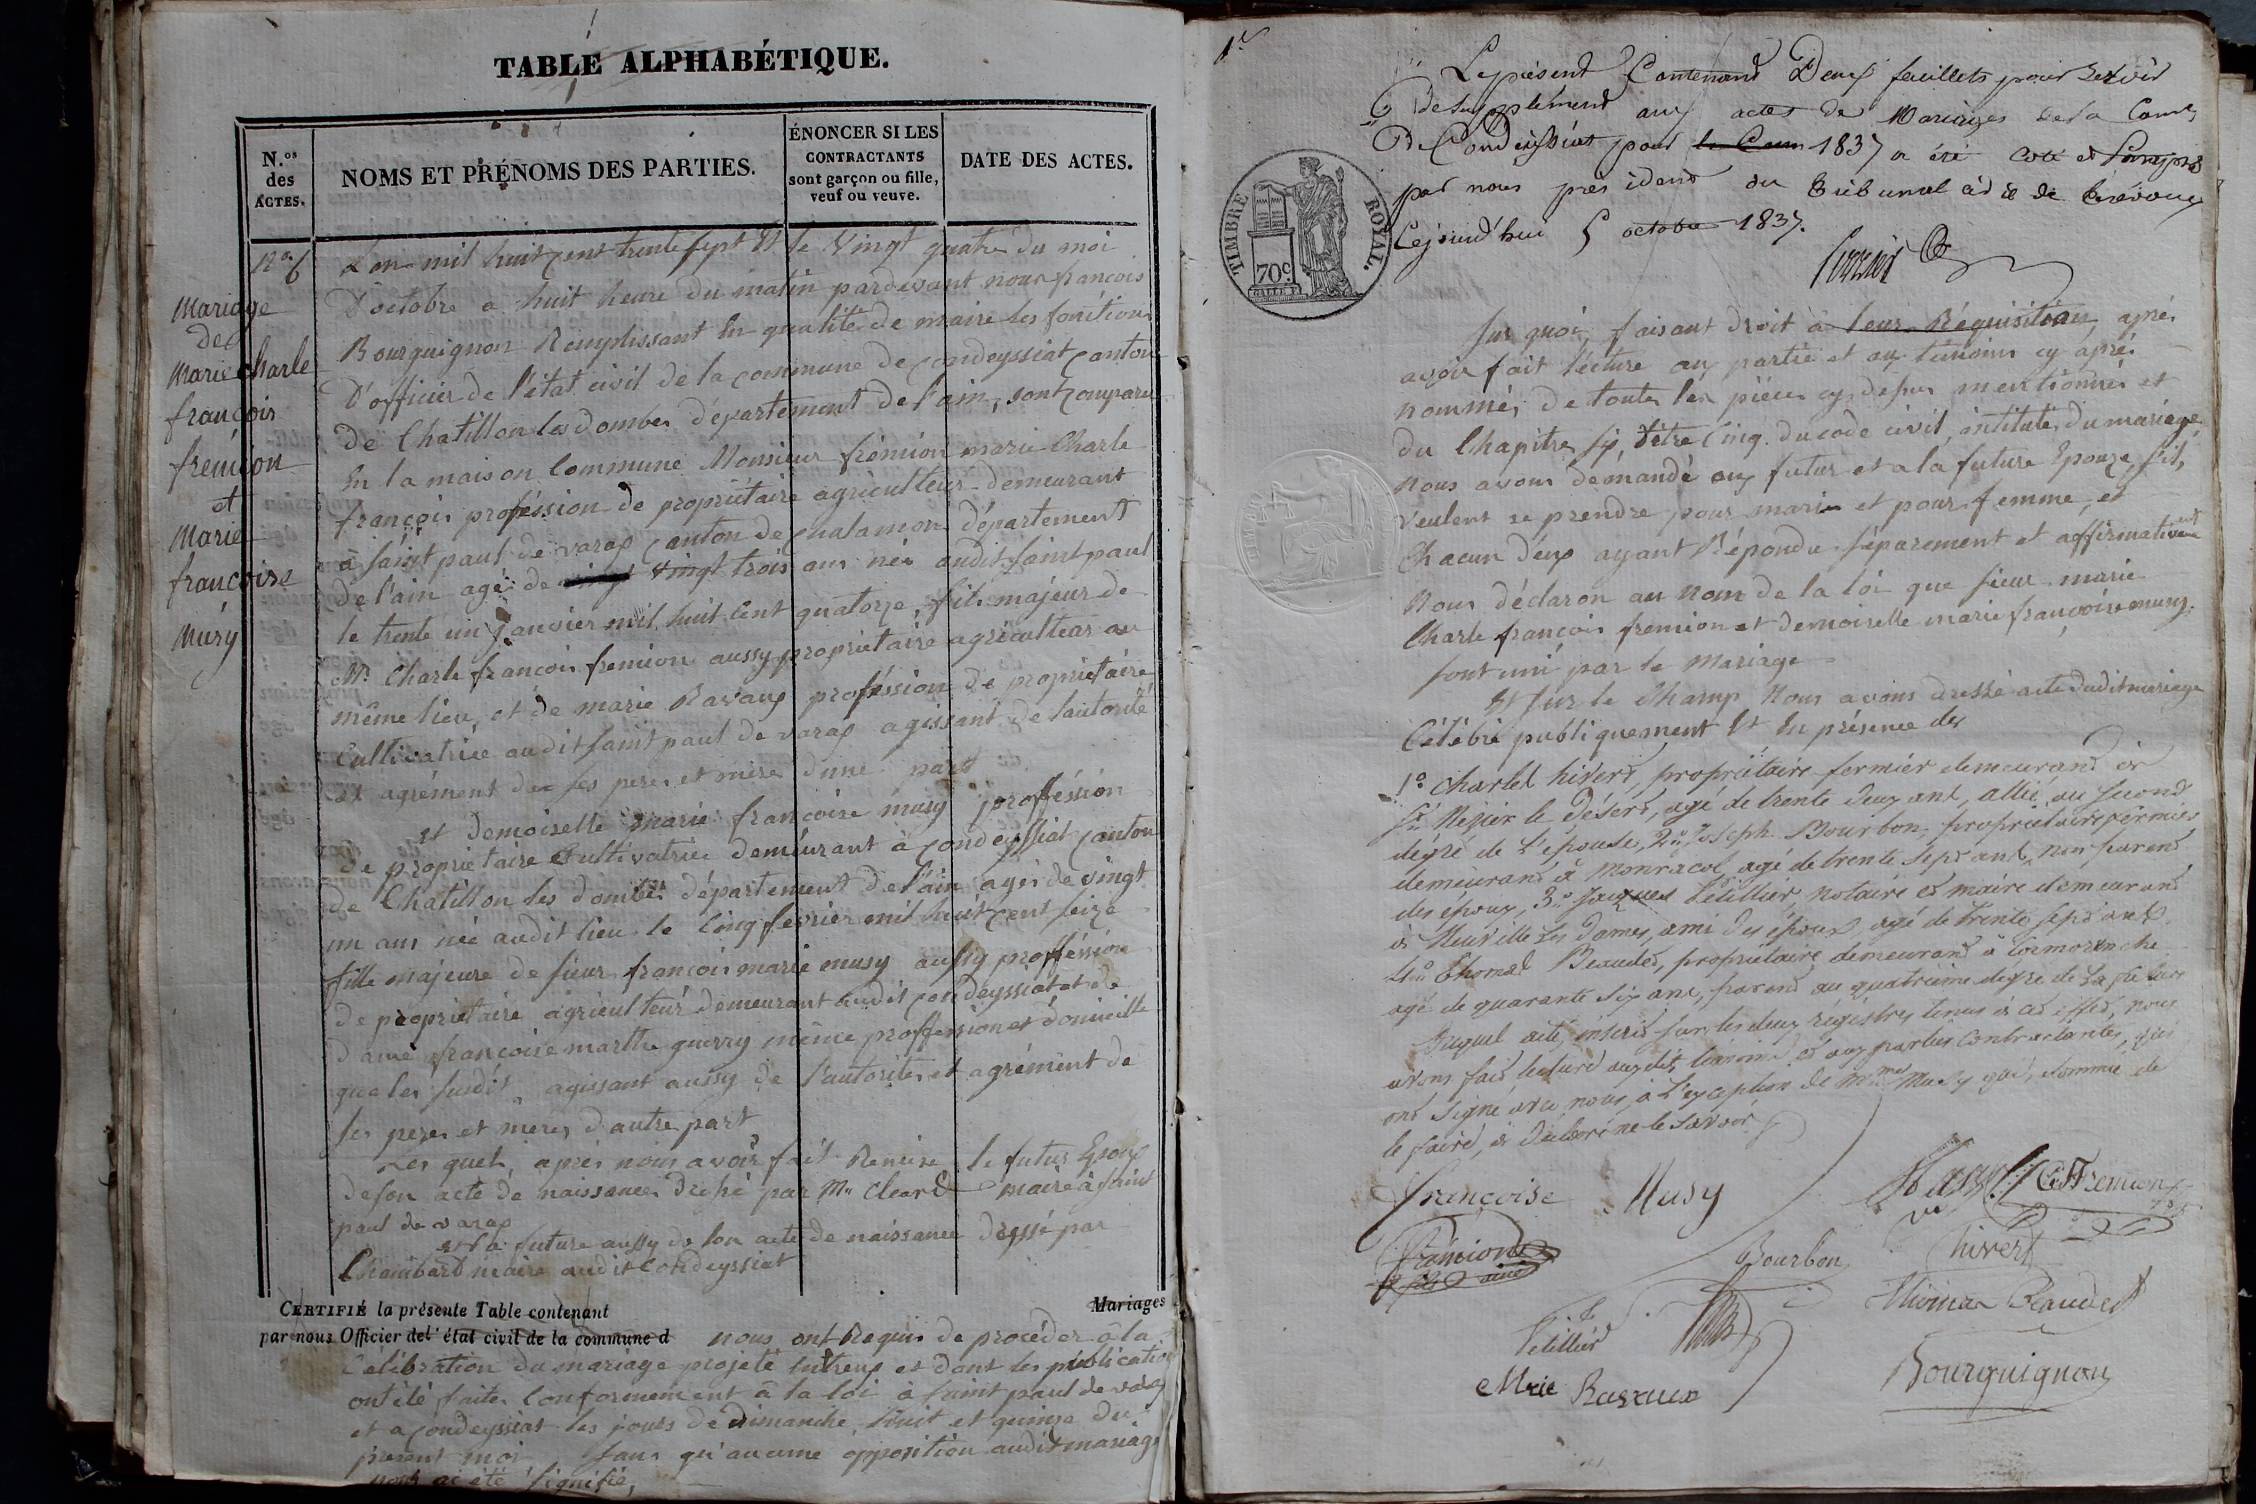 TABLE ALPHABÉTIQUE.
N.os des ACTES.
NOMS ET PRÉNOMS DES PARTIES.
ÉNONCER SI LES CONTRACTANTS sont garçon ou fille, veuf ou veuve.
DATE DES ACTES.
No. 6
Mariage
de
Marie Charle
françois
fremion
et
Marie
françoise
Musy
L'an mil huit cent trente sept Et le Vingt quatre du moi
D'octobre a huit heure du matin pardevant nous françois
Bourguignon Remplissant En qualité de maire les fonctions
D'officier de l'état civil de la commune de Condeyssiat canton
de Chatillon les dombes département de l'ain, sont comparu
En la maison Commune Monsieur frémion marie Charle
françois proféssion de propriétaire agriculteur demeurant
à saint paul de varax Canton de Chalamon département
de l'ain agé de vingt trois ans née audit saint paul
le trente un janvier mil huit cent quatorze, fils majeur de
Mr. Charle françois fremion aussy propriétaire agriculteur au
même lieu, et de marie Ravaux proféssion de propriétaire
Cultivatrice audit saint paul de varax agissant de l'autorité
et agrément de ses peres et mere d'une part
et demoiselle marie françoise musy proffession
de propriétaire Cultivatrice demeurant à Condeyssiat canton
de Chatillon les dombes département de l'ain agés de vingt
un ans née audit lieu le Cinq fevrier mil huit cent seize
fille majeure de sieur françois marie musy aussy proffession
de propriétaire agriculteur demeurant audit condeyssiat et de
dame françoise marthe guerry même proffession et domicille
que les susdit, agissant aussy de l'autorités et agrément de
ses peres et meres d'autre part
Les quels, après nous avoir fait Remise le futur Epoux
de son acte de naissance Dressé par Mr Cleard maire à saint
paul de varax
et la future aussy de son acte de naissance dressé par
Chambard maire audit Condeyssiat
CERTIFIÉ la présente Table contenant Mariages
par nous Officier del' état civil de la commune d nous ont Requis de procéder à la
Célébration du mariage projeté entreux et dont les publications
ont été faites Conformément à la loi à saint paul de varax
et a condeyssiat les jours de dimanche huit et quinze du
present moi sans qu'aucune opposition audit mariage
nous ai été signifié,
1er
Le présent Contenant Deux feuillets pour servir
De supplément aux actes de Mariages de la Comne
De Condeissiat pour le Cou 1837 a été coté et paraphé
par nous président du tribunal civil de trévoux
Cejourd'hui 5 octobre 1837.
TIMBRE ROYAL.
70c.
Sur quoi, faisant droit à leur Réquisition, après
avoir fait lécture aux partie et aux temoins cy après
nommés de toutes les pièces cy dessus mentionnés et
du Chapitre six, titre Cinq. du code civil, intitulé, du mariage,
nous avons demandé aux futur et a la future Epouze s'il
veulent se prendre pour mari et pour femme, et
Chacun d'eux ayant Répondu séparement et affirmativement
Nous déclaron au nom de la loi que sieur marie
Charle françois fremion et demoiselle marie françoise musy.
sont uni par le mariage
Et Sur le Champ Nous avons dressé acte dudit mariage
Célébré publiquement Et En présence des
1o Charles hivert, propriétaire fermier demeurant à
St Nizier le Désert, agé de trente deux ans, allié au second
degré de l'épouse, 2o Joseph Bourbon, propriétaire fermier
demeurant à Monracol agé de trente sept ans, non parent
des époux, 3o Jacques Pétillier, notaire et maire demeurant
à Neuville les Dames, ami des époux agé de trente sept ans
4o Thomas Beaudet, propriétaire demeurant à Cormoranche
agé de quarante six ans, parent au quatrième degré de la future
Duquel acte, inscrit sur les deux régistres tenus à cet effet, nous
avons fait lecture auxdits témoins et aux parties contractantes, qui
ont signé avec nous, à l'exception de Mme Musy qui, sommée de
le faire, à déclaré ne le savoir
françoise Musy
Musy
C. F. Fremion
Frémion
fils aîné
Bourbon
hivert
Thomas Beaudet
Pétillier
Mrie Ravaux
Bourguignon